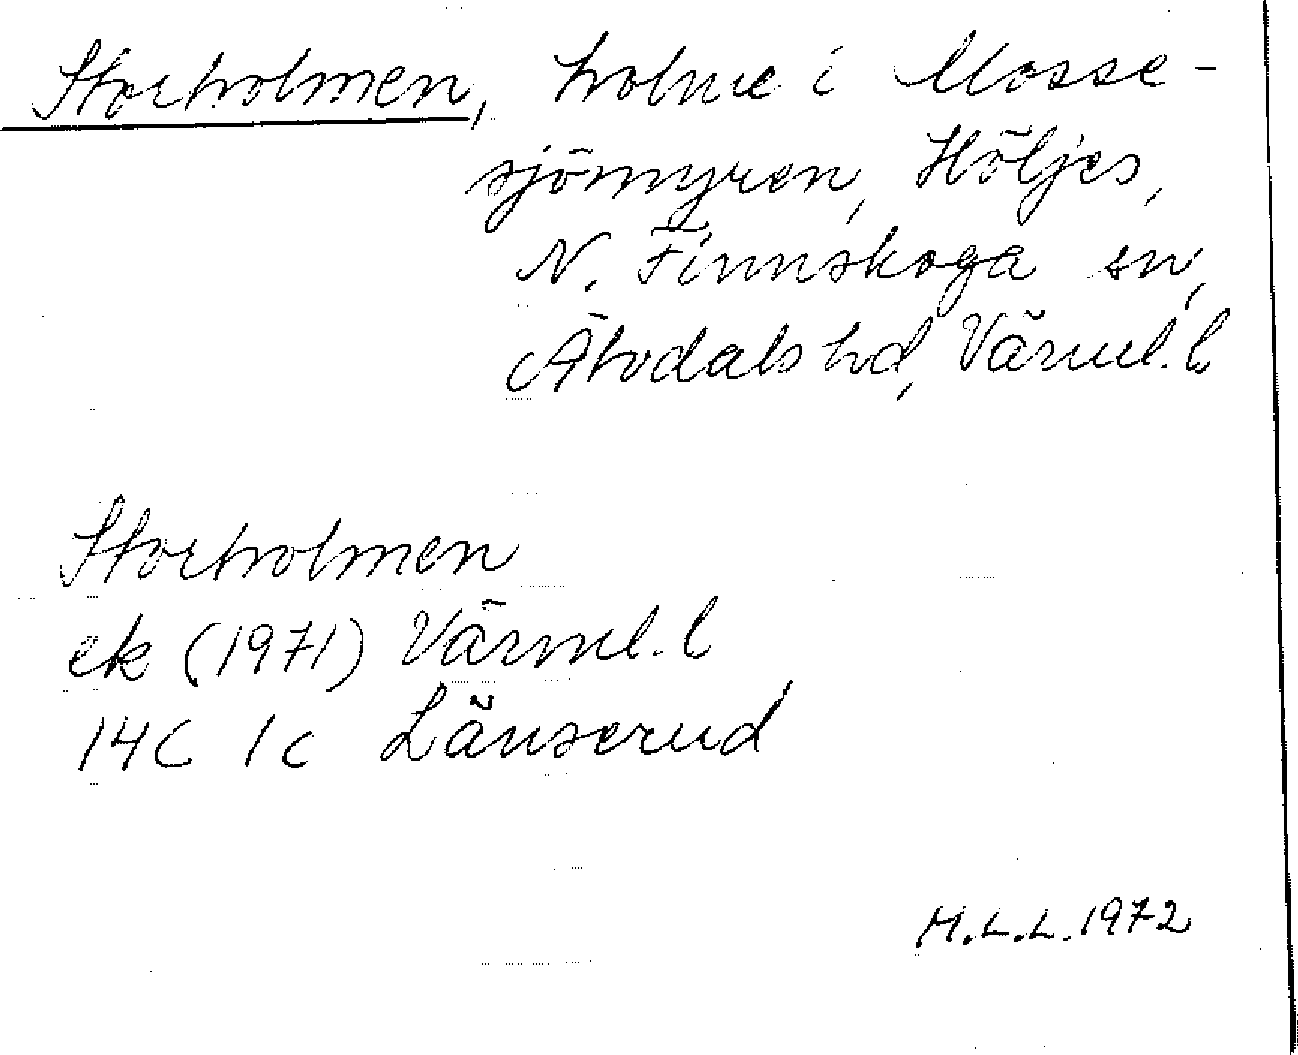 Storholmen, holme i Mosse-
sjömyren, Höljes,
N. Finnskoga sn,
Älvdals hd, Värml. l
Storholmen
ek (1971) Värml. l
14C 1c Länserud
M.L.L. 1972